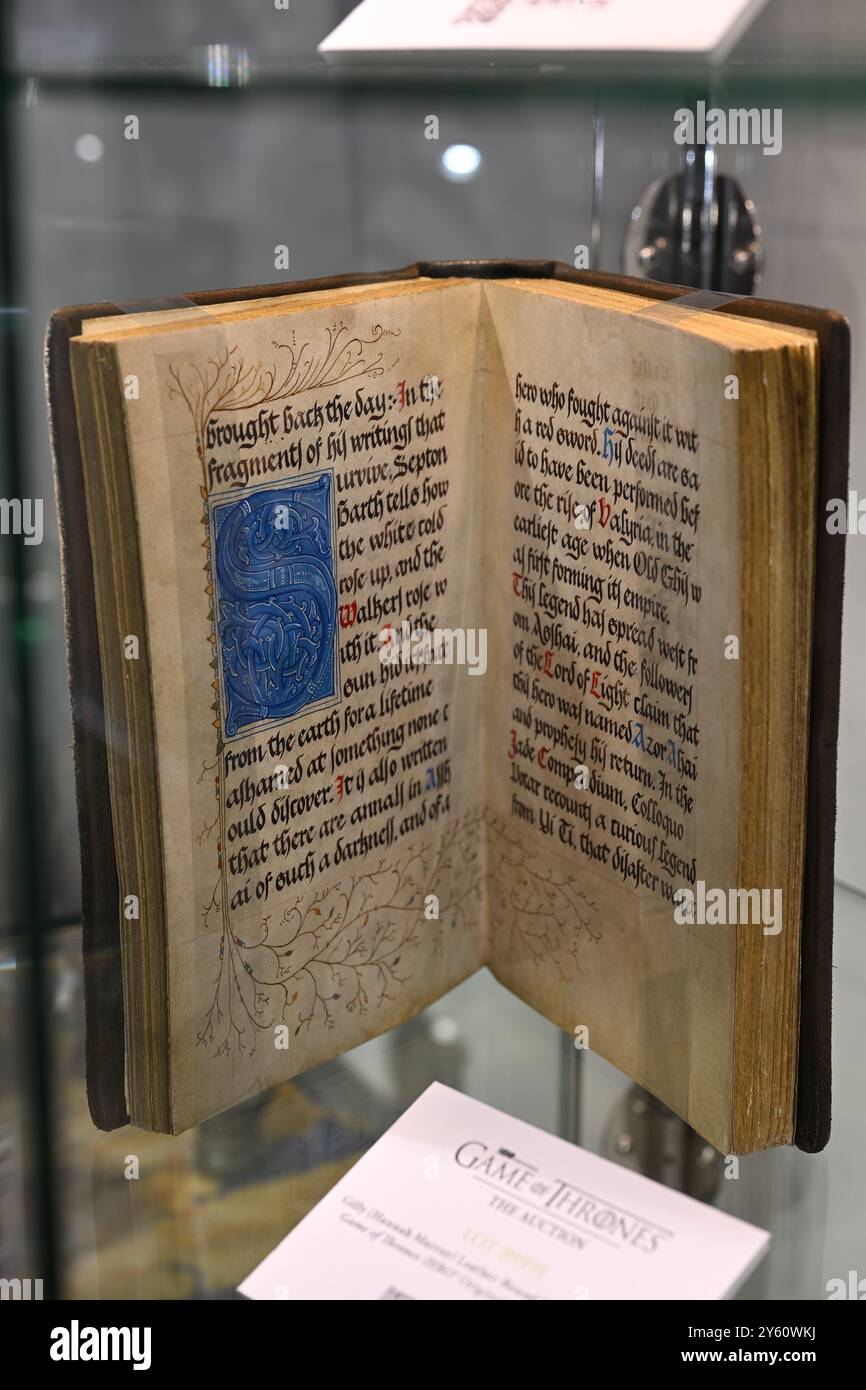 brought back the day:- In the
fragments of his writings that
Survive, Septon
Barth tells how
the white cold
rose up, and the
Walkers rose w
ith it. And the
sun hid itself
from the earth for a lifetime
ashamed at something none c
ould discover. It is also written
that there are annals in Assh
ai of such a darkness, and of a
hero who fought against it wit
h a red sword. His deeds are sa
id to have been performed bef
ore the rise of Valyria, in the
earliest age when Old Ghis w
as first forming its empire.
This legend has spread west fr
om Asshai, and the followers
of the Lord of Light claim that
this hero was named Azor Ahai
and prophesy his return. In the
Jade Compendium, Colloquo
Votar recounts a curious legend
from Yi Ti, that disaster
GAME OF THRONES
THE AUCTION
LOT
Gilly (Hannah Murray) Leather-Bound
Game of Thrones
alamy
alamy
Image ID: 2Y60WKJ
www.alamy.com